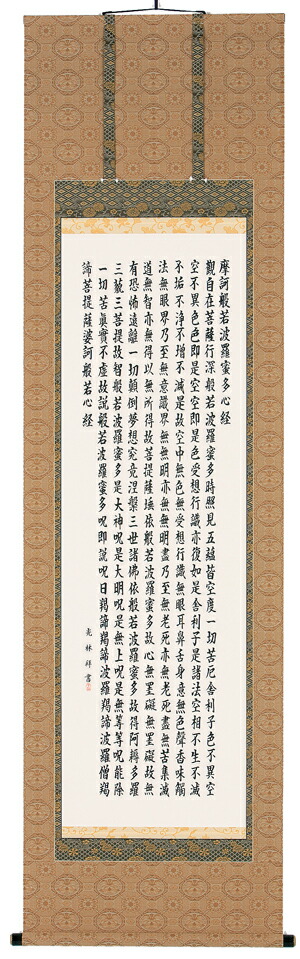 摩訶般若波羅蜜多心経
觀自在菩薩行深般若波羅蜜多時照見五蘊皆空度一切苦厄舎利子色不異空
空不異色色即是空空即是色受想行識亦復如是舎利子是諸法空相不生不滅
不垢不浄不増不滅是故空中無色無受想行識無眼耳鼻舌身意無色聲香味觸
法無眼界乃至無意識界無無明亦無無明盡乃至無老死亦無老死盡無苦集滅
道無智亦無得以無所得故菩提薩埵依般若波羅蜜多故心無罣礙無罣礙故無
有恐怖遠離一切顛倒夢想究竟涅槃三世諸佛依般若波羅蜜多故得阿耨多羅
三藐三菩提故智般若波羅蜜多是大神呪是大明呪是無上呪是無等等呪能除
一切苦眞實不虚故説般若波羅蜜多呪即説呪曰羯諦羯諦波羅羯諦波羅僧羯
諦菩提薩婆訶般若心経
林祥書